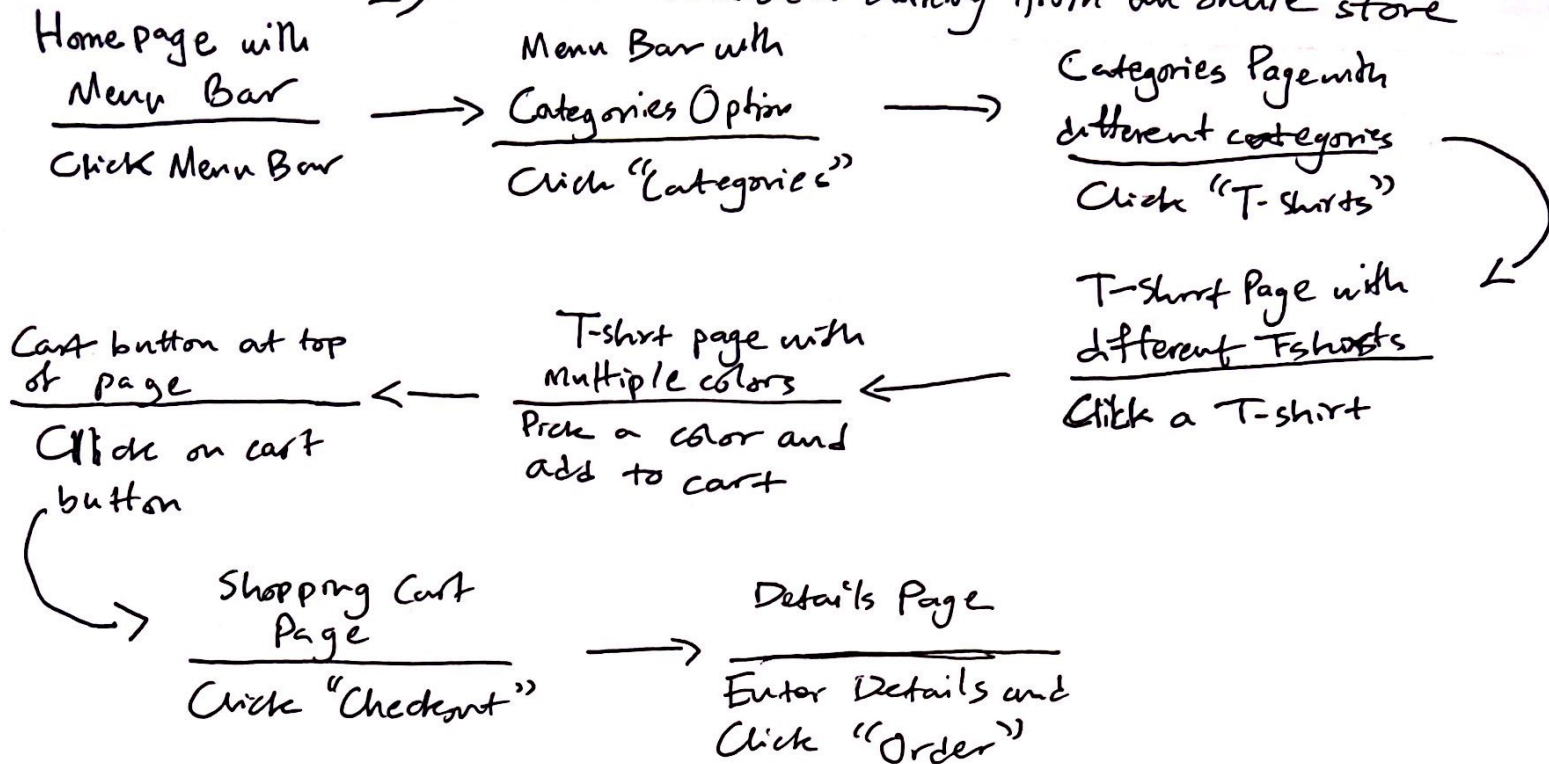 from an online store
Homepage with
Menu Bar
Click Menu Bar
Menu Bar with
Categories Option
Click "Categories"
Categories Page with
different categories
Click "T-Shirts"
T-Shirt Page with
different Tshirts
Click a T-shirt
T-shirt page with
Multiple colors
Pick a color and
add to cart
Cart button at top
of page
Click on cart
button
Shopping Cart
Page
Click "Checkout"
Details Page
Enter Details and
Click "Order"